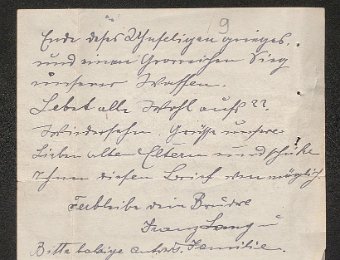 9
Ende dises Unseligen grieges.
und einen Glorreichen Sieg
unserer Waffen.
Lebet alle Wohl aufs ??
Wiedersehn Grüsse unsere
Lieben alten Eltern und schicke
Ihnen diesen Brief wen möglich.
Ferbleibe dein Bruder
Franz Lang
Bitte Familie.